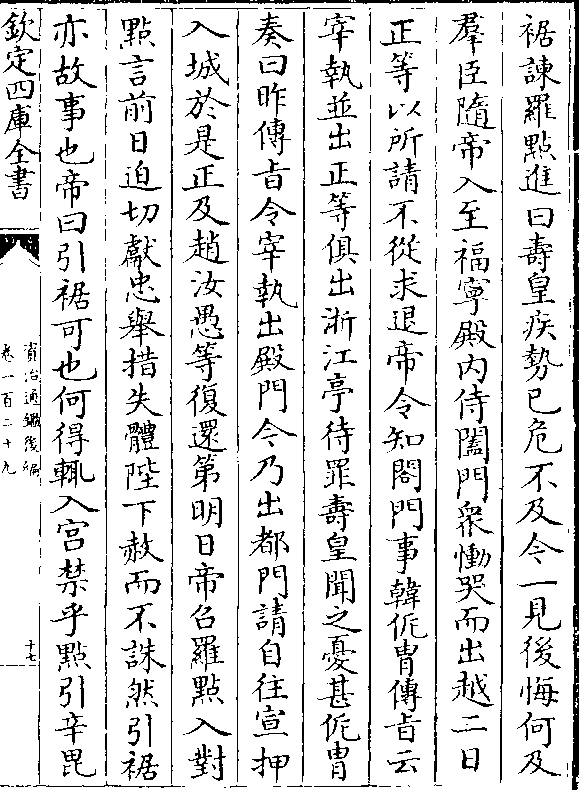 裾諫羅點進曰壽皇疾勢已危不及今一見後悔何及
羣臣隨帝入至福寧殿内侍闔門衆慟哭而出越二日
正等以所請不從求退帝令知閤門事韓侂胄傳㫖云
宰執並出正等俱出浙江亭待罪壽皇聞之憂甚侂胄
奏曰昨傳㫖令宰執出殿門今乃出都門請自往宣押
入城於是正及趙汝愚等復還第明日帝召羅點入對
點言前日迫切獻忠舉措失體陛下赦而不誅然引裾
亦故事也帝曰引裾可也何得輒入宫禁乎點引辛毘
欽定四庫全書
資治通鑑後編
卷一百二十九
十七